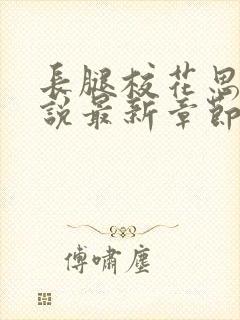 長腿校花思
說最新章節
傅嘯塵